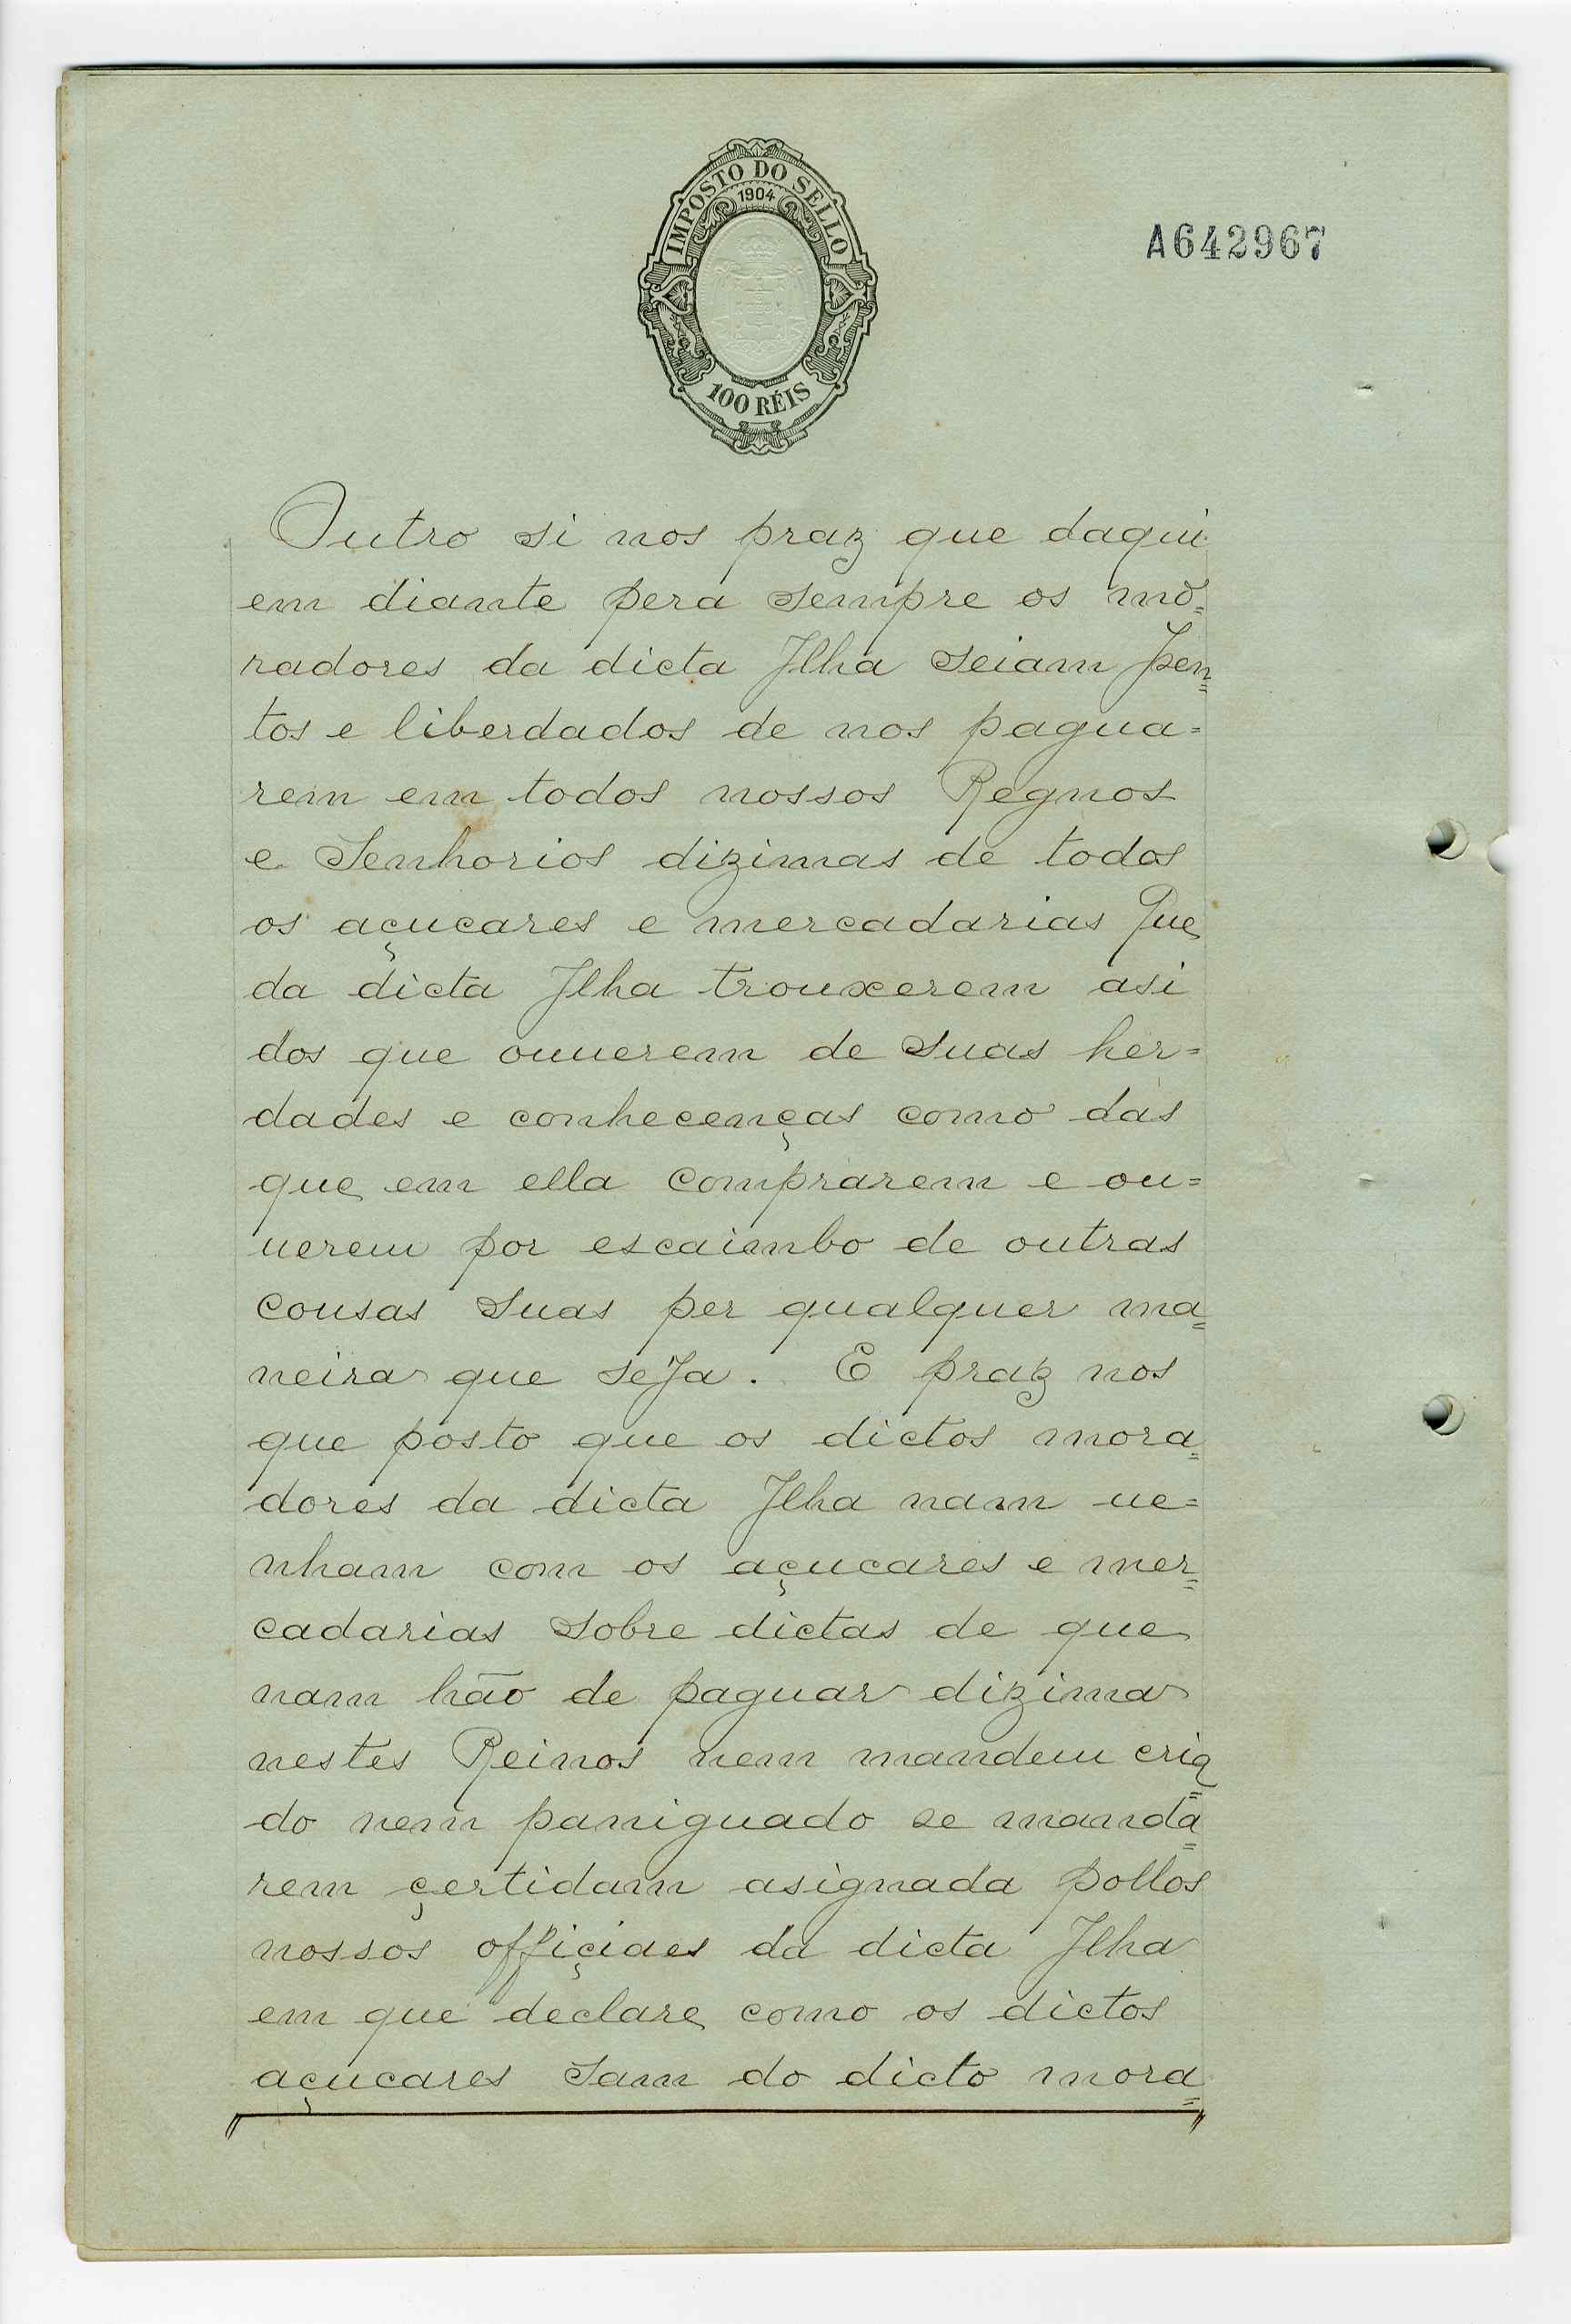 IMPOSTO DO SELLO
1904
100 RÉIS
A642967
Outro si nos praz que daqui
em diante pera sempre os mo=
radores da dicta Ilha seiam Jsen=
tos e liberdados de nos pagua=
rem em todos nossos Regnos
e Senhorios dizimas de todos
os açucares e mercadarias Que
da dicta Ilha trouxerem asi
dos que ouuerem de suas her=
dades e conhecenças como das
que em ella comprarem e ou=
uerem por escaimbo de outras
cousas suas per qualquer ma=
neira que seJa. E praz nos
que posto que os dictos mora=
dores da dicta Ilha nam ue=
nham com os açucares e mer=
cadarias sobre dictas de que
nam hão de paguar dizima
nestes Reinos nem mandem cria=
do nem paniguado se manda=
rem çertidam asignada pollos
nossos offiçiaes da dicta Ilha
em que declare como os dictos
açucares sam do dicto mora=